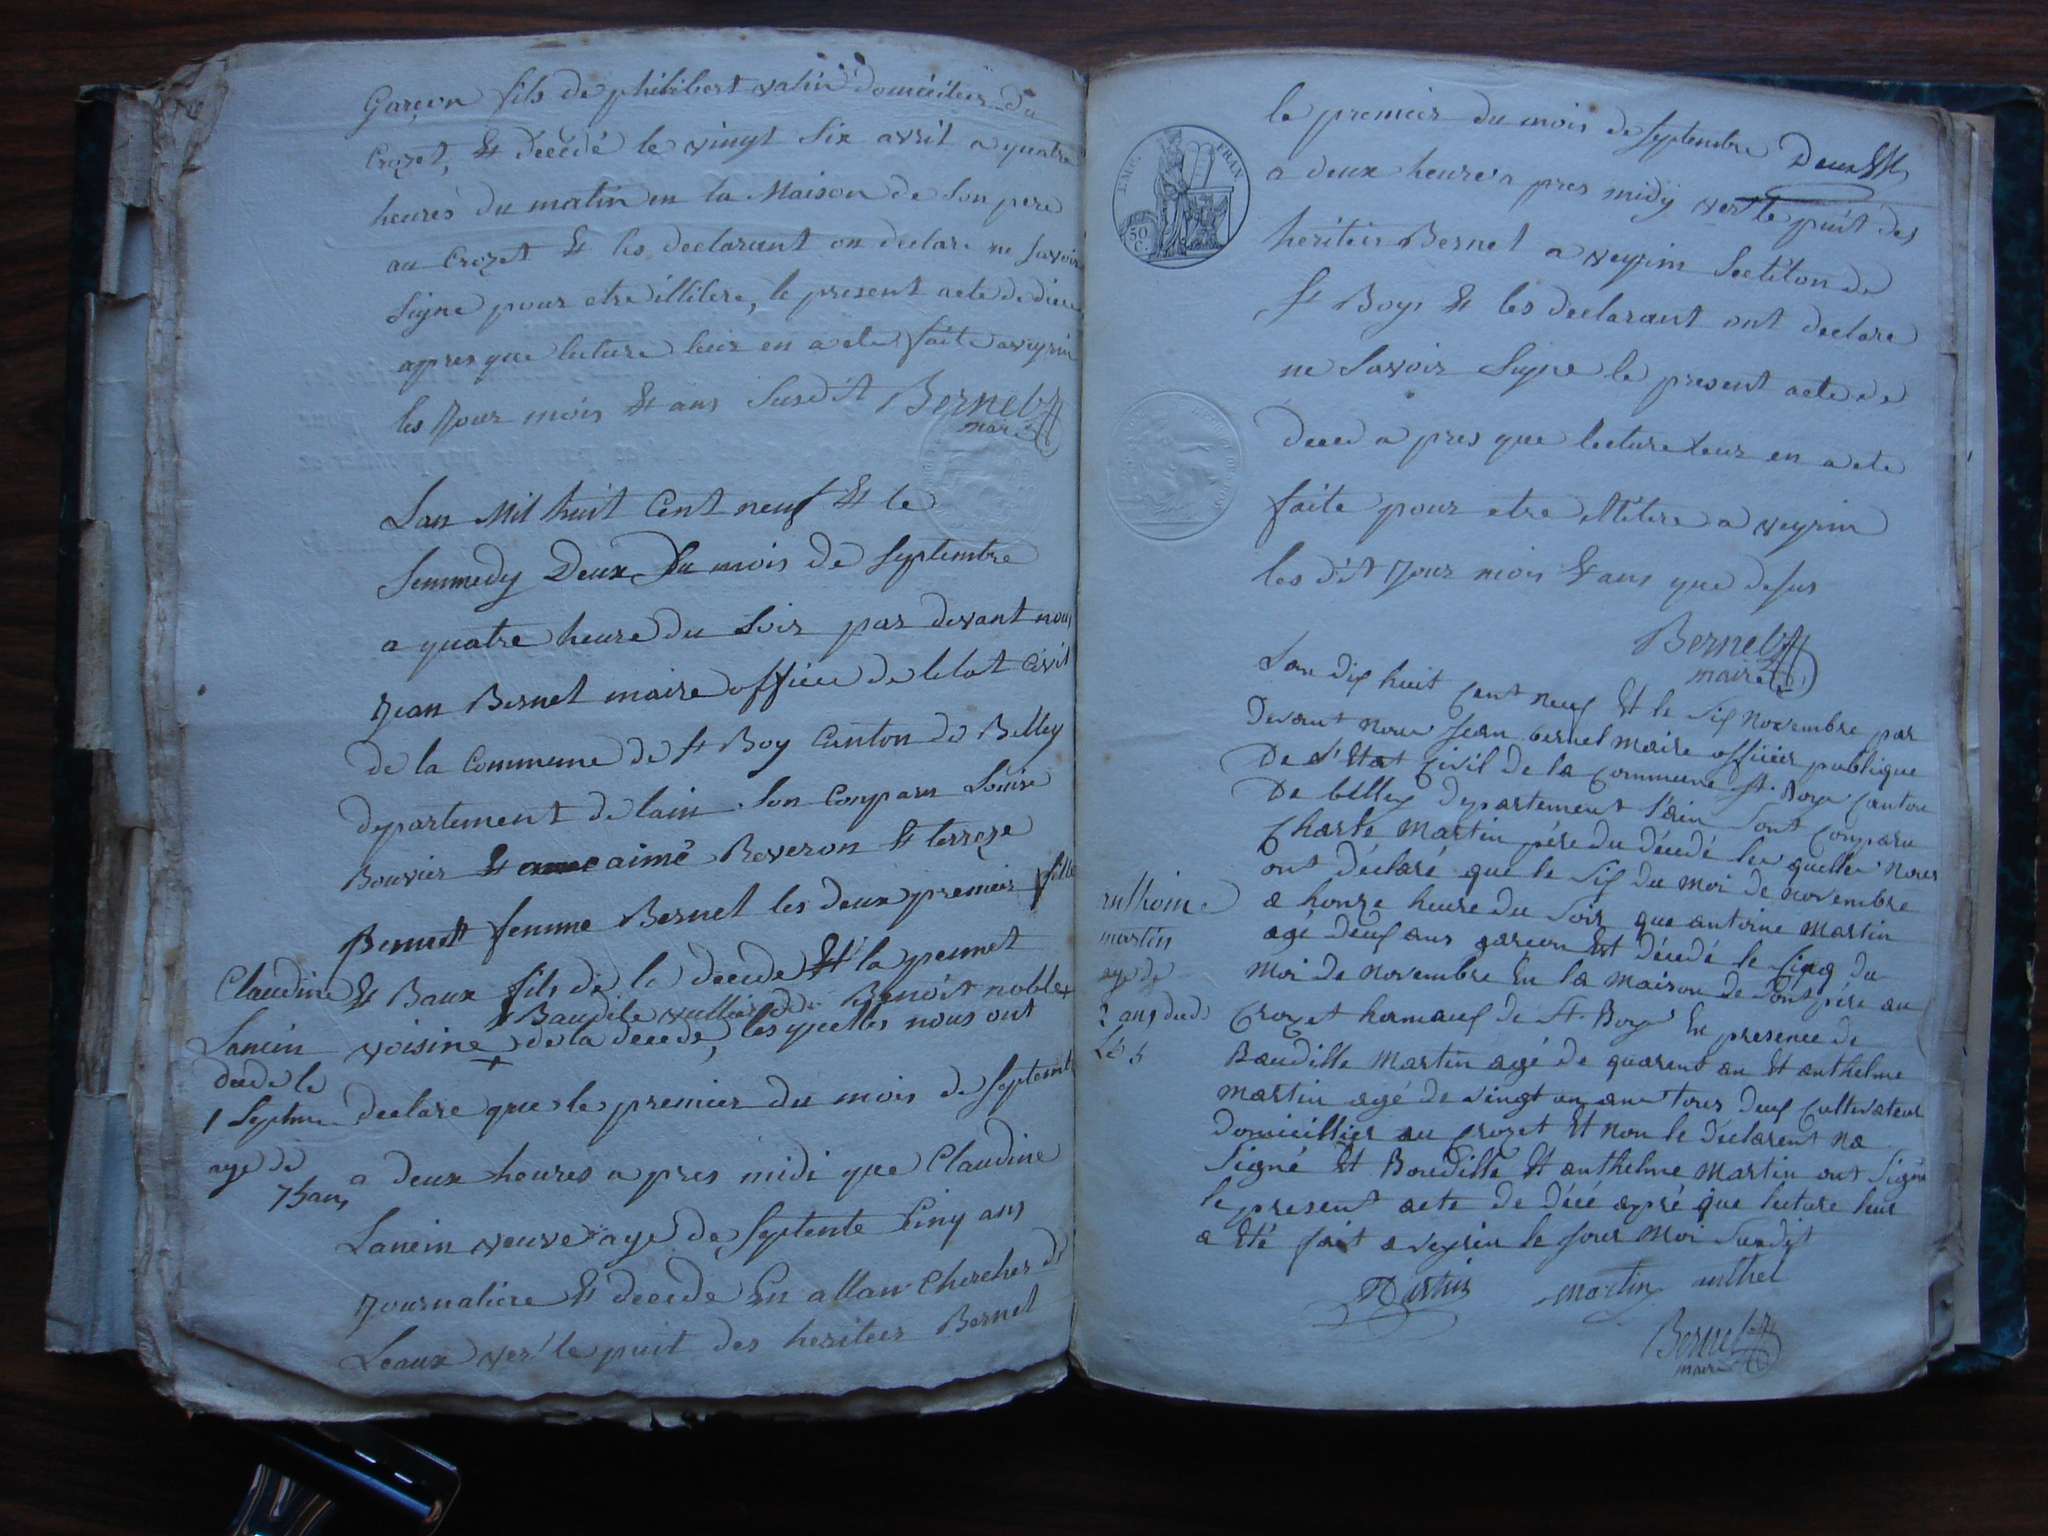 Garçon fils de philibert vatin domicilier du
Crozet, Et décédé le vingt Six avril a quatre
heures du matin en la Maison de Son pere
au Crozet Et les declarant on declare ne Savoir
Signe pour etre illitere, le present acte de dice
apres que lecture leur en a ete faite a veyrin
les Jour mois Et ans Susdit Bernet
maire
Lan Mil huit Cent neuf Et le
Semmedy Deux Du mois de Septembre
a quatre heure du Soir par devant nous
Jean Bernet maire officie de letat Civil
de la Commune de St Boy Canton de Belley
departement de lain Son Comparu Louise
Bouvier Et aimé Reveron Et terreze
Benoit femme Bernet les deux premier fille
Et Baux fils de la decede Et la
Baudile Benoit noble
voisine de la decede, lesquelles nous ont
declare que le premier du mois de Septembre
a deux heures apres midi que Claudine
Lanein veuve age de Septente Cinq ans
Journaliere Et decede En allan Chercher de
Leaux ver le puit des heritier Bernet
Claudine
Lanein
decede le
1 Septbre
age de
75 ans
le premier du mois de Septembre
a deux heure apres midy ver le puit des
heritier Bernet a veyrin Section de
St Boys Et les declarant ont declare
ne Savoir Signe le present acte de
deced apres que lecture leur en a ete
faite pour etre illitere a veyrin
les dit Jour mois Et ans que desus
Bernet
maire
Lan dix huit Cent neuf Et le Six Novembre par
Devant nous Jean bernet maire officier publique
De l'Etat Civil de la Commune St. Boys Canton
De belley departement l'ain Sont Comparu
Charle Martin père du décédé lequelle Nous
ont déclaré que le Six du moi de novembre
a honze heure du Soir que antoine Martin
agé deux ans garcon Est décédé le Cinq du
Moi de novembre En la maison de Son père au
Crozet hamauf de St. Boys En presence de
Baudille Martin agé de quarent an Et anthelme
Martin agé de vingt un an Tous deux Cultivateur
domicillier au Crozet Et non le déclarent na
Signé Et Baudille Et anthelme Martin ont Signé
le present acte de décé apré que lecture leur
a Eté fait a veyrin le Jour Moi Susdit
anthoine
martin
age de
2 ans deced
Le 5
Martin martin anthel
Bernet
maire
EMP. FRAN
50
C.